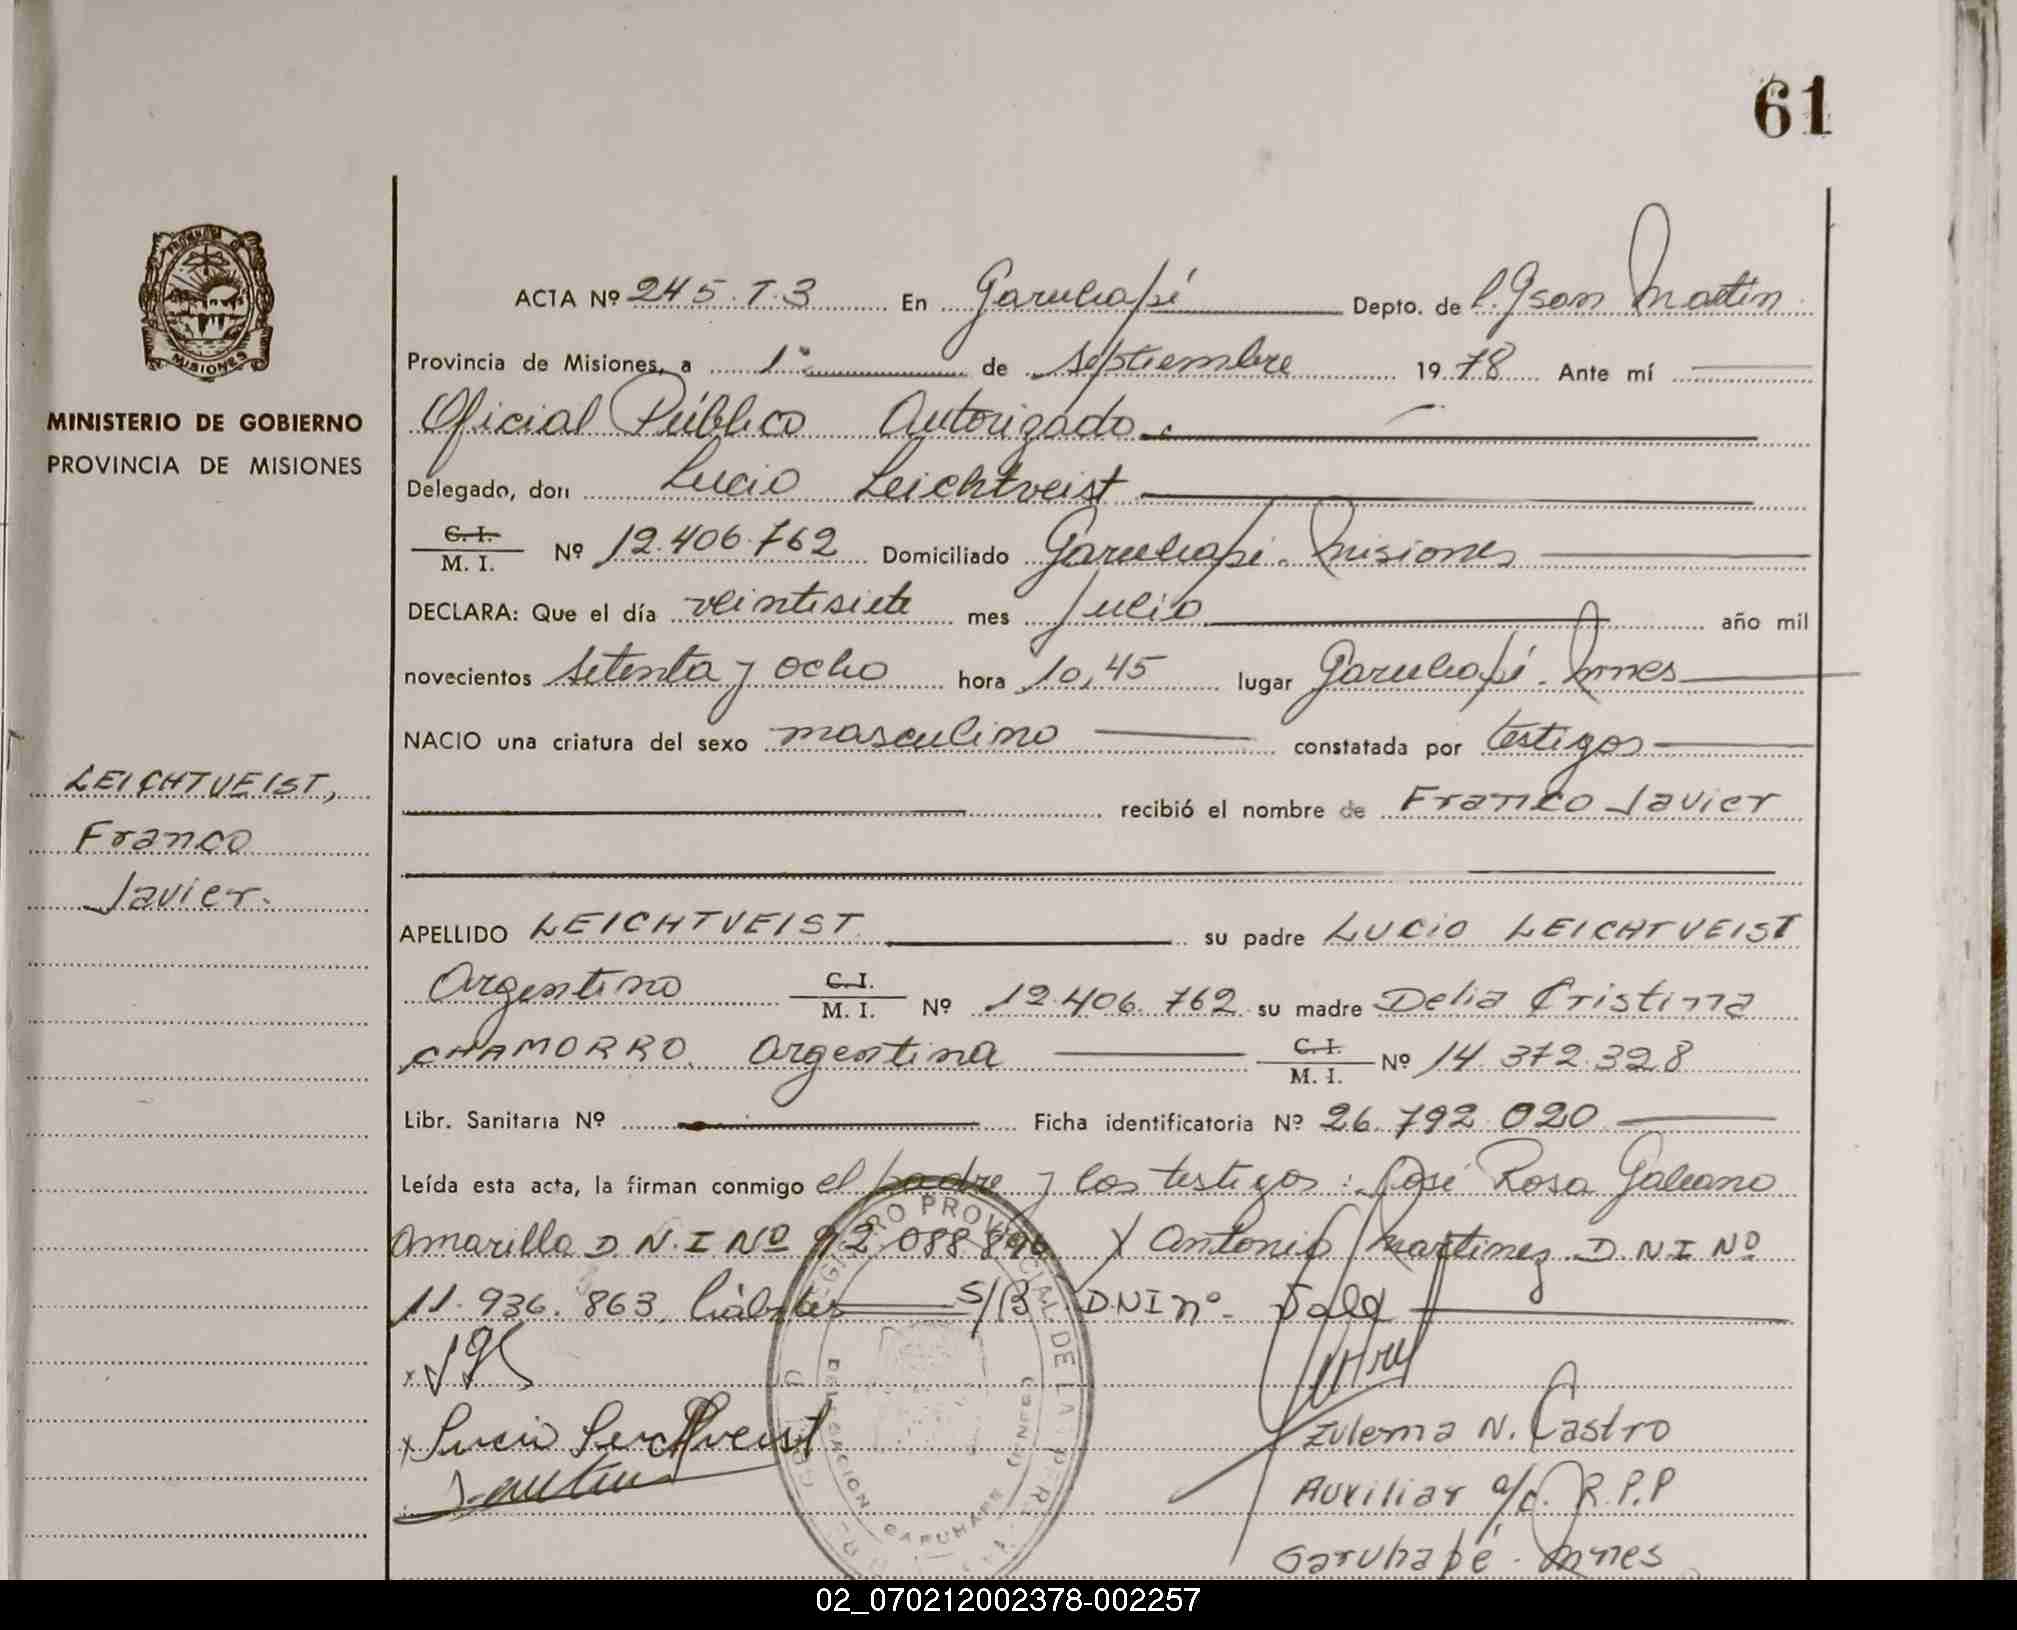 61
PROVINCIA DE
MISIONES
MINISTERIO DE GOBIERNO
PROVINCIA DE MISIONES
LEICHTVEIST,
Franco
Javier.
ACTA Nº 245. T. 3 En Garuhapé Depto. de L. Gson Martin
Provincia de Misiones, a 1º de septiembre 1978 Ante mí
Oficial Público Autorizado.
Delegado, don Lucio Leichtveist
C. I. / M. I. Nº 12.406.762 Domiciliado Garuhapé. Misiones
DECLARA: Que el día veintisiete mes Julio año mil
novecientos setenta y ocho hora 10,45 lugar Garuhapé. Mnes
NACIO una criatura del sexo masculino constatada por testigos
recibió el nombre de Franco Javier
APELLIDO LEICHTVEIST su padre LUCIO LEICHTVEIST
Argentino C. I. / M. I. Nº 12.406.762 su madre Delia Cristina
CHAMORRO. Argentina C. I. / M. I. Nº 14.372.328
Libr. Sanitaria Nº Ficha identificatoria Nº 26.792.020
Leída esta acta, la firman conmigo el padre y los testigos: José Rosa Galeano
Amarilla D N.I Nº 92.088.896 y Antonio Martinez D N I Nº
11.936.863, hábiles S/B DNI nº. Vale
Lucio Leichtveist
Zulema N. Castro
Auxiliar a/c. R.P.P
Garuhapé. Mnes
REGISTRO PROVINCIAL DE LAS PER
DELEGACION GARUHAPE
02_070212002378-002257